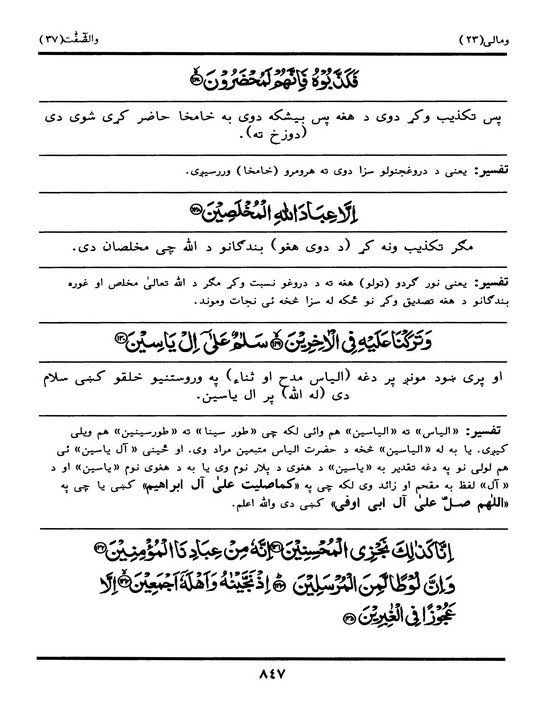 ومالی(۲۳) والصّٰفّٰت(۳۷)
فَكَذَّبُوْهُ فَاِنَّهُمْ لَمُحْضَرُوْنَ ﴿۱۲۷﴾
پس تکذیب وکړ دوی د هغه پس بیشکه دوی به خامخا حاضر کړی شوی دی
(دوزخ ته).
تفسیر: یعنی د دروغجنولو سزا دوی ته هرومرو (خامخا) وررسیږی.
اِلَّا عِبَادَ اللّٰهِ الْمُخْلَصِيْنَ ﴿۱۲۸﴾
مګر تکذیب ونه کړ (د دوی هغو) بندګانو د الله چی مخلصان دی.
تفسیر: یعنی نور ګردو (تولو) هغه ته د دروغو نسبت وکړ مګر د الله تعالیٰ مخلص او غوره
بندګانو د هغه تصدیق وکړ نو ځکه له سزا څخه ئی نجات وموند.
وَتَرَكْنَا عَلَيْهِ فِى الْاٰخِرِيْنَ ﴿۱۲۹﴾ سَلٰمٌ عَلٰٓى اِلْ يَاسِيْنَ ﴿۱۳۰﴾
او پری ښود مونږ پر دغه (الیاس مدح او ثناء) په وروستنیو خلقو کښی سلام
دی (له الله) پر ال یاسین.
تفسیر: «الیاس» ته «الیاسین» هم وائی لکه چی «طور سینا» ته «طورسینین» هم ویلی
کیږی. یا به له «الیاسین» څخه د حضرت الیاس متبعین مراد وی. او ځینی «آل یاسین» ئی
هم لولی نو په دغه تقدیر به «یاسین» د هغوی د پلار نوم وی یا به د هغوی نوم «یاسین» او د
«آل» لفظ به مقحم او زائد وی لکه چی په «کماصلیت علیٰ آل ابراهیم» کښی یا چی په
«اللهم صلّ علیٰ آل ابی اوفی» کښی دی والله اعلم.
اِنَّا كَذٰلِكَ نَجْزِى الْمُحْسِنِيْنَ ﴿۱۳۱﴾ اِنَّهٗ مِنْ عِبَادِنَا الْمُؤْمِنِيْنَ ﴿۱۳۲﴾
وَاِنَّ لُوْطًا لَّمِنَ الْمُرْسَلِيْنَ ﴿۱۳۳﴾ اِذْ نَجَّيْنٰهُ وَاَهْلَهٗٓ اَجْمَعِيْنَ ﴿۱۳۴﴾ اِلَّا
عَجُوْزًا فِى الْغٰبِرِيْنَ ﴿۱۳۵﴾
۸٤۷